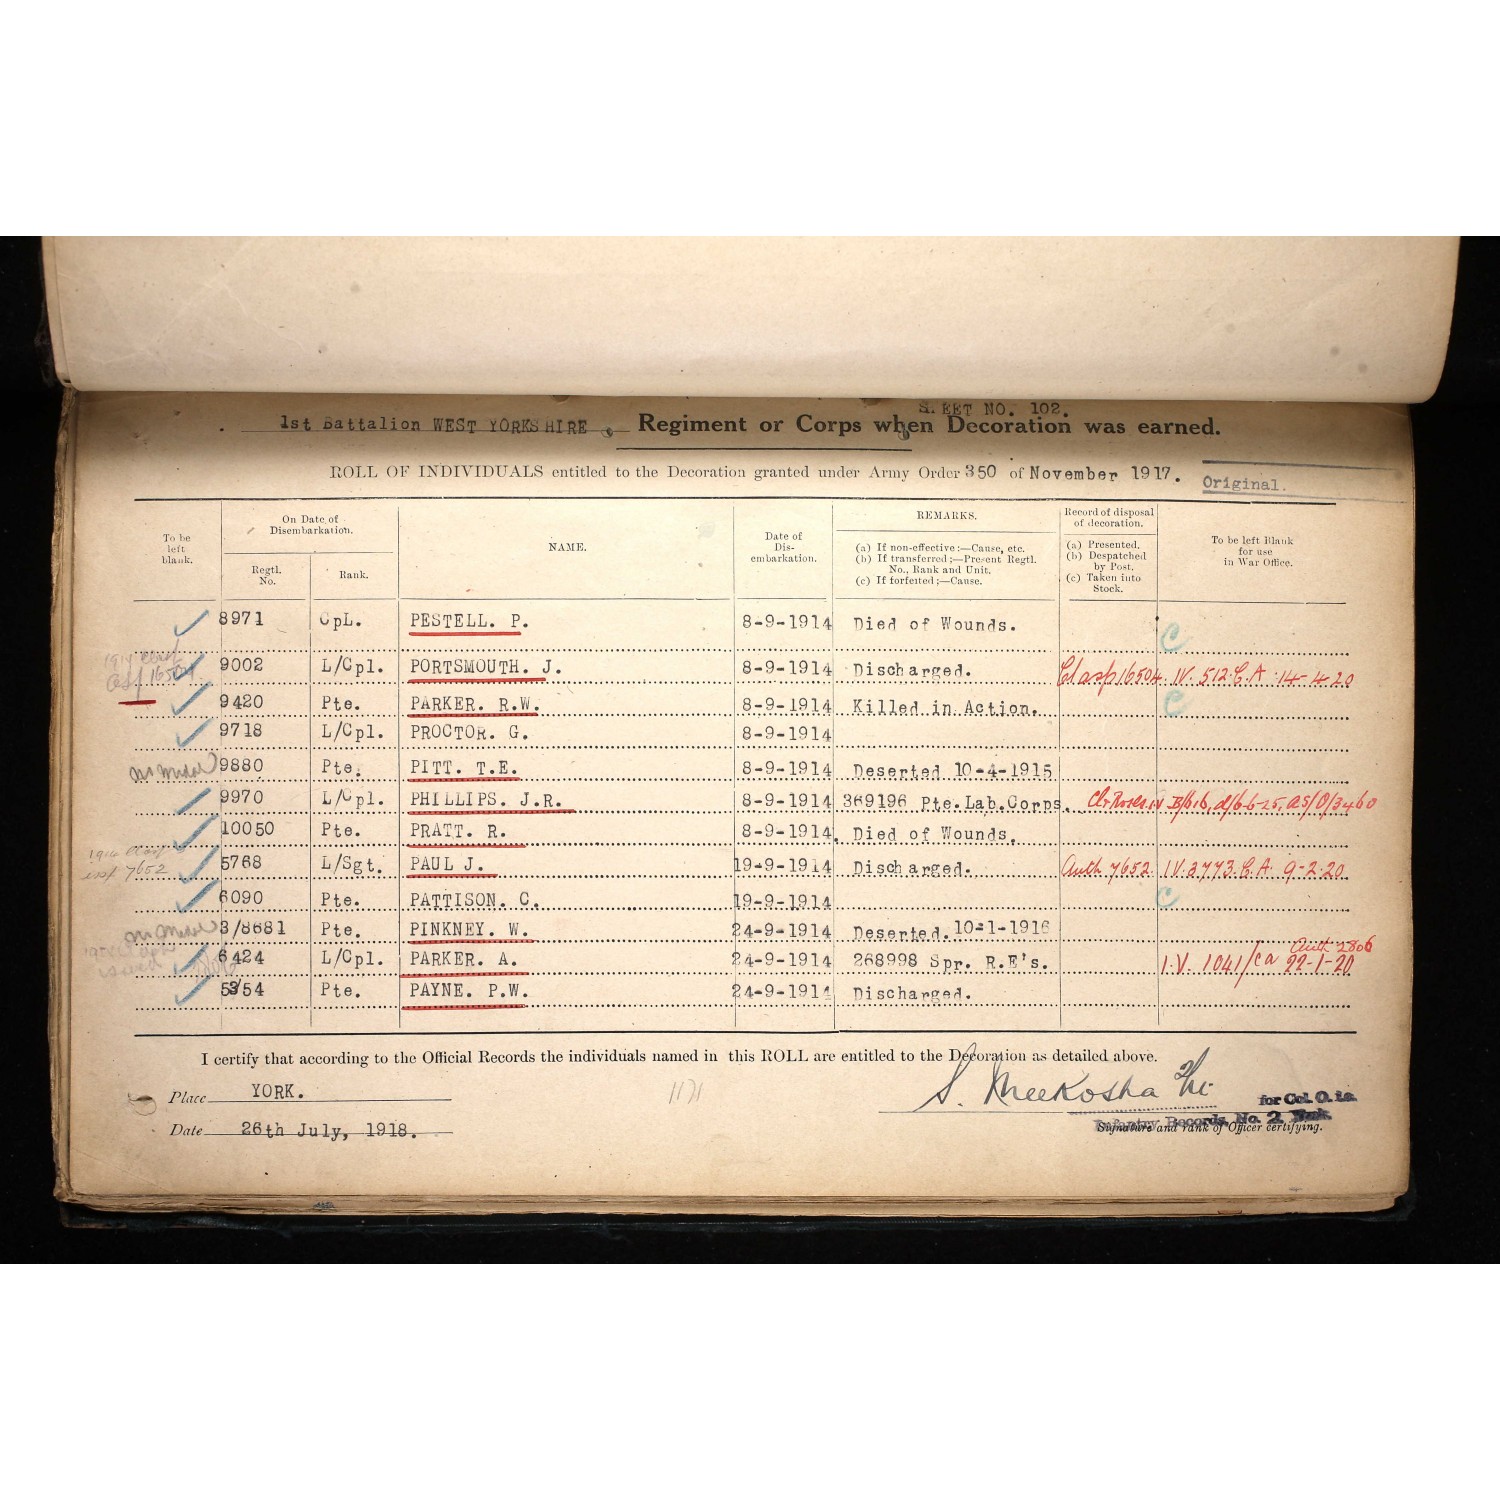 SHEET NO. 102.
1st Battalion WEST YORKSHIRE Regiment or Corps when Decoration was earned.
ROLL OF INDIVIDUALS entitled to the Decoration granted under Army Order 350 of November 1917.
Original.
To be left blank.
On Date of Disembarkation.
Regtl. No.
Rank.
NAME.
Date of Dis-embarkation.
REMARKS.
(a) If non-effective:—Cause, etc.
(b) If transferred;—Present Regtl. No., Rank and Unit.
(c) If forfeited;—Cause.
Record of disposal of decoration.
(a) Presented.
(b) Despatched by Post.
(c) Taken into Stock.
To be left Blank for use in War Office.
8971 CpL. PESTELL. P. 8-9-1914 Died of Wounds. C
1914 Clasp 16504 9002 L/Cpl. PORTSMOUTH. J. 8-9-1914 Discharged. Clasp 16504 IV. 512.E.A 14-4-20
9420 Pte. PARKER. R.W. 8-9-1914 Killed in Action. C
9718 L/Cpl. PROCTOR. G. 8-9-1914
no medal 9880 Pte. PITT. T.E. 8-9-1914 Deserted 10-4-1915
9970 L/Cpl. PHILLIPS. J.R. 8-9-1914 369196 Pte.Lab.Corps. Clr Roses. IV B/616, d/6-6-25, as/O/3460
10050 Pte. PRATT. R. 8-9-1914 Died of Wounds.
1914 Clasp iss 7652 5768 L/Sgt. PAUL J. 19-9-1914 Discharged. Auth 7652. IV.3773.E.A. 9-2-20.
6090 Pte. PATTISON. C. 19-9-1914 C
no medal 3/8681 Pte. PINKNEY. W. 24-9-1914 Deserted. 10-1-1916
issued 2806 6424 L/Cpl. PARKER. A. 24-9-1914 268998 Spr. R.E's. I.V. 1041/ca Auth 2806 22-1-20
5354 Pte. PAYNE. P.W. 24-9-1914 Discharged.
I certify that according to the Official Records the individuals named in this ROLL are entitled to the Decoration as detailed above.
Place YORK.
1171
S. Meekosha
for Col. O. i.c.
Infantry Records, No. 2, York.
Date 26th July, 1918.
Signature and rank of Officer certifying.